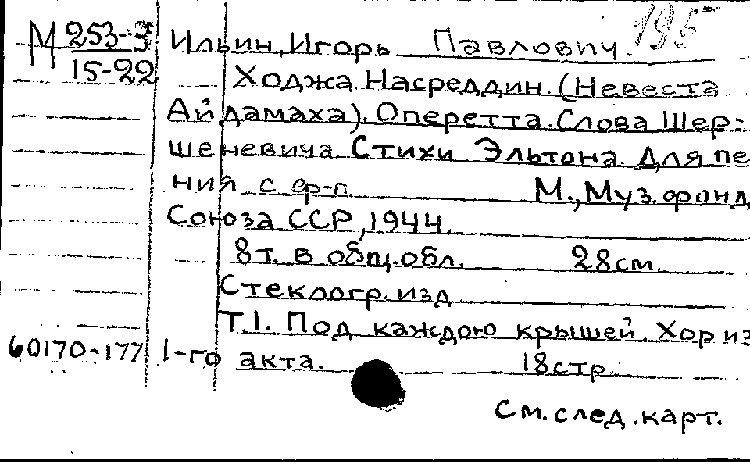 195
М 253-3 Ильин, Игорь Павлович.
15-22 Ходжа Насреддин. (Невеста
Айдамаха). Оперетта. Слова Шер-
шеневича. Стихи Эльтона. Для пе
ния с ф-п. М., Муз. фонд
Союза ССР, 1944.
8т. в общ. обл. 28см.
Стеклогр. изд
Т.1. Под каждою крышей. Хор из
60170-177 1-го акта. 18стр
См. след. карт.